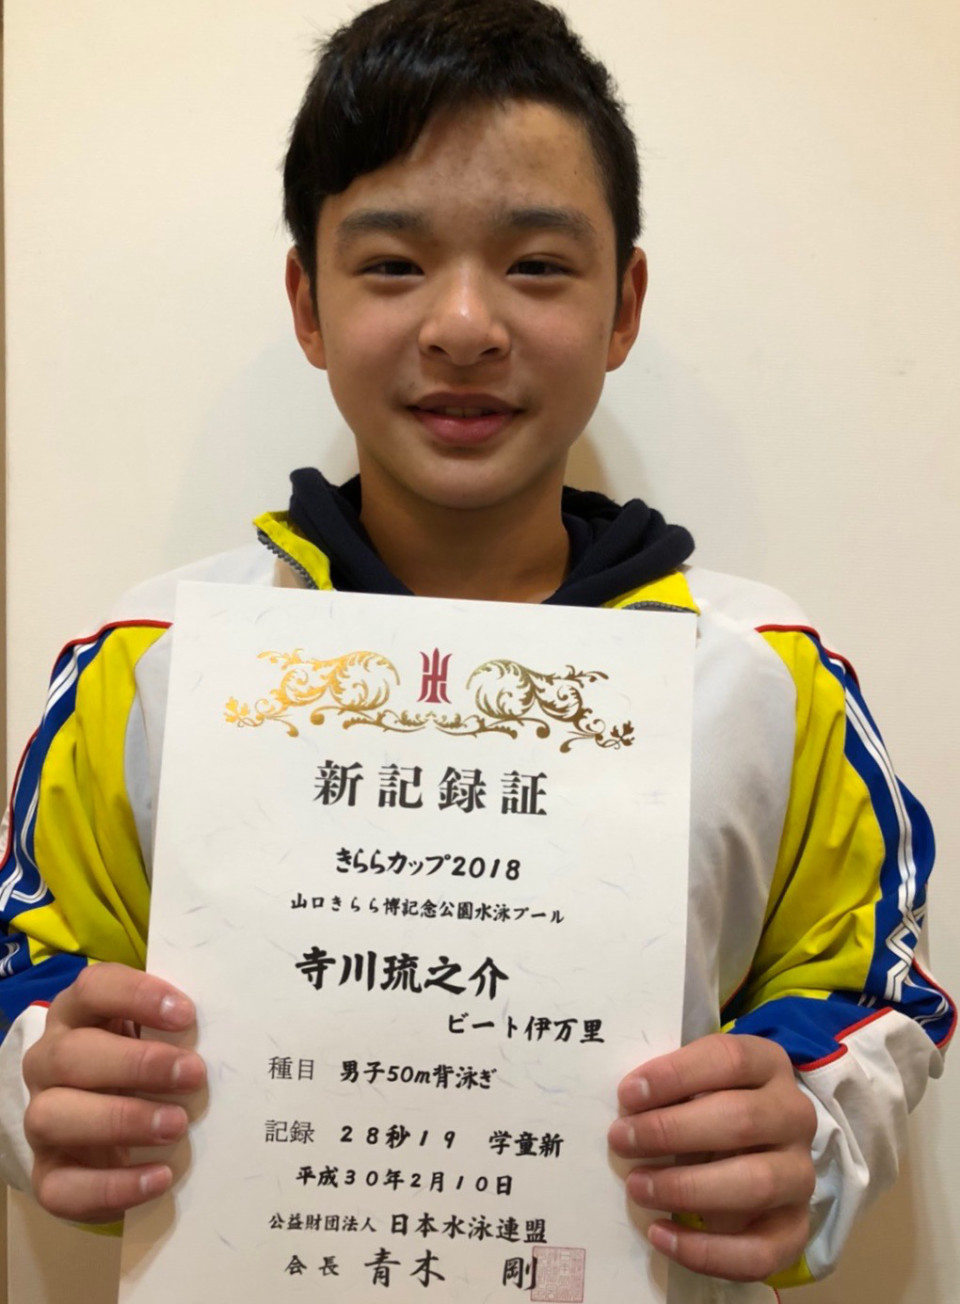 新記録証
きららカップ2018
山口きらら博記念公園水泳プール
寺川琉之介
ビート伊万里
種目 男子50m背泳ぎ
記録 28秒19 学童新
平成30年2月10日
公益財団法人 日本水泳連盟
会長 青木 剛